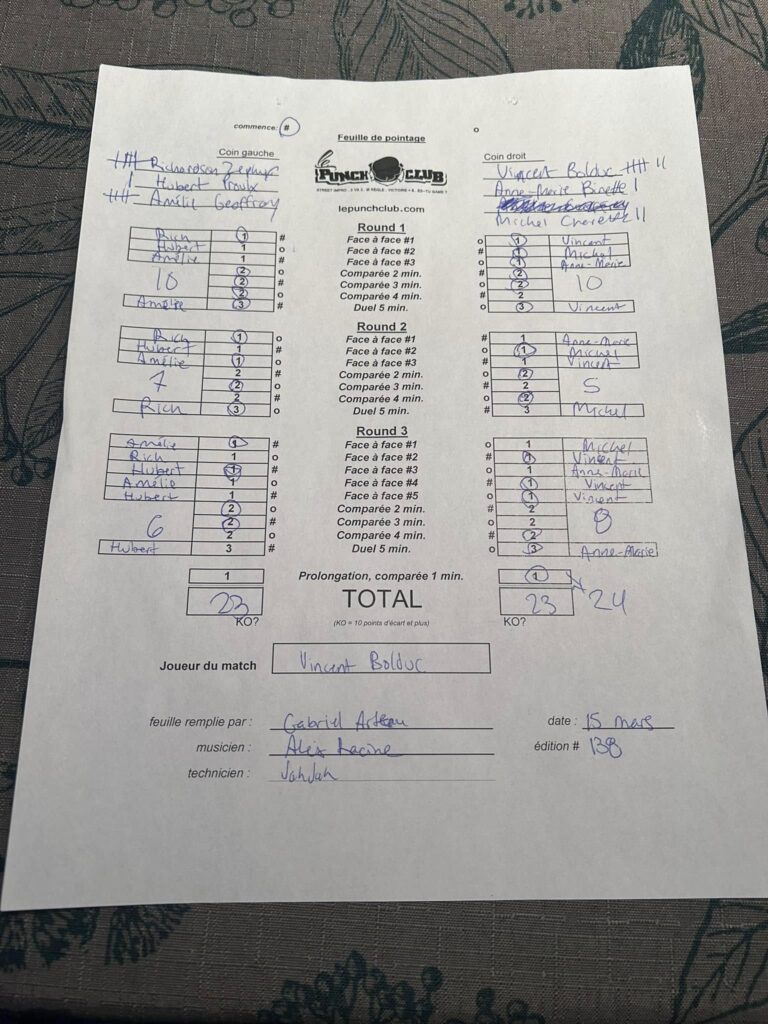 commence: # o
Feuille de pointage
Coin gauche Coin droit
Richardson Zephyr Vincent Bolduc
Hubert Proulx Anne-Marie Binette
Amélie Geoffroy
Michel
le PUNCH CLUB
lepunchclub.com
Round 1
Rich 1 # Face à face #1 o 1 Vincent
Hubert 1 o Face à face #2 # 1 Michel
Amélie 1 # Face à face #3 o 1 Anne-Marie
2 o Comparée 2 min. # 2
10 2 # Comparée 3 min. o 2 10
2 o Comparée 4 min. # 2
Amélie 3 # Duel 5 min. o 3 Vincent
Round 2
Rich 1 o Face à face #1 # 1 Anne-Marie
Hubert 1 # Face à face #2 o 1 Michel
Amélie 1 o Face à face #3 # 1 Vincent
7 2 # Comparée 2 min. o 2 5
2 o Comparée 3 min. # 2
2 # Comparée 4 min. o 2
Rich 3 o Duel 5 min. # 3 Michel
Round 3
Amélie 1 # Face à face #1 o 1 Michel
Rich 1 o Face à face #2 # 1 Vincent
Hubert 1 # Face à face #3 o 1 Anne-Marie
Amélie 1 o Face à face #4 # 1 Vincent
Hubert 1 # Face à face #5 o 1 Vincent
2 o Comparée 2 min. # 2
6 2 # Comparée 3 min. o 2 8
2 o Comparée 4 min. # 2
Hubert 3 # Duel 5 min. o 3 Anne-Marie
1 Prolongation, comparée 1 min. 1
23 TOTAL 23 24
KO? (KO = 10 points d'écart et plus) KO?
Joueur du match Vincent Bolduc
feuille remplie par : Gabriel Arteau date : 15 mars
musicien : Alex Racine édition # 138
technicien : JahJah